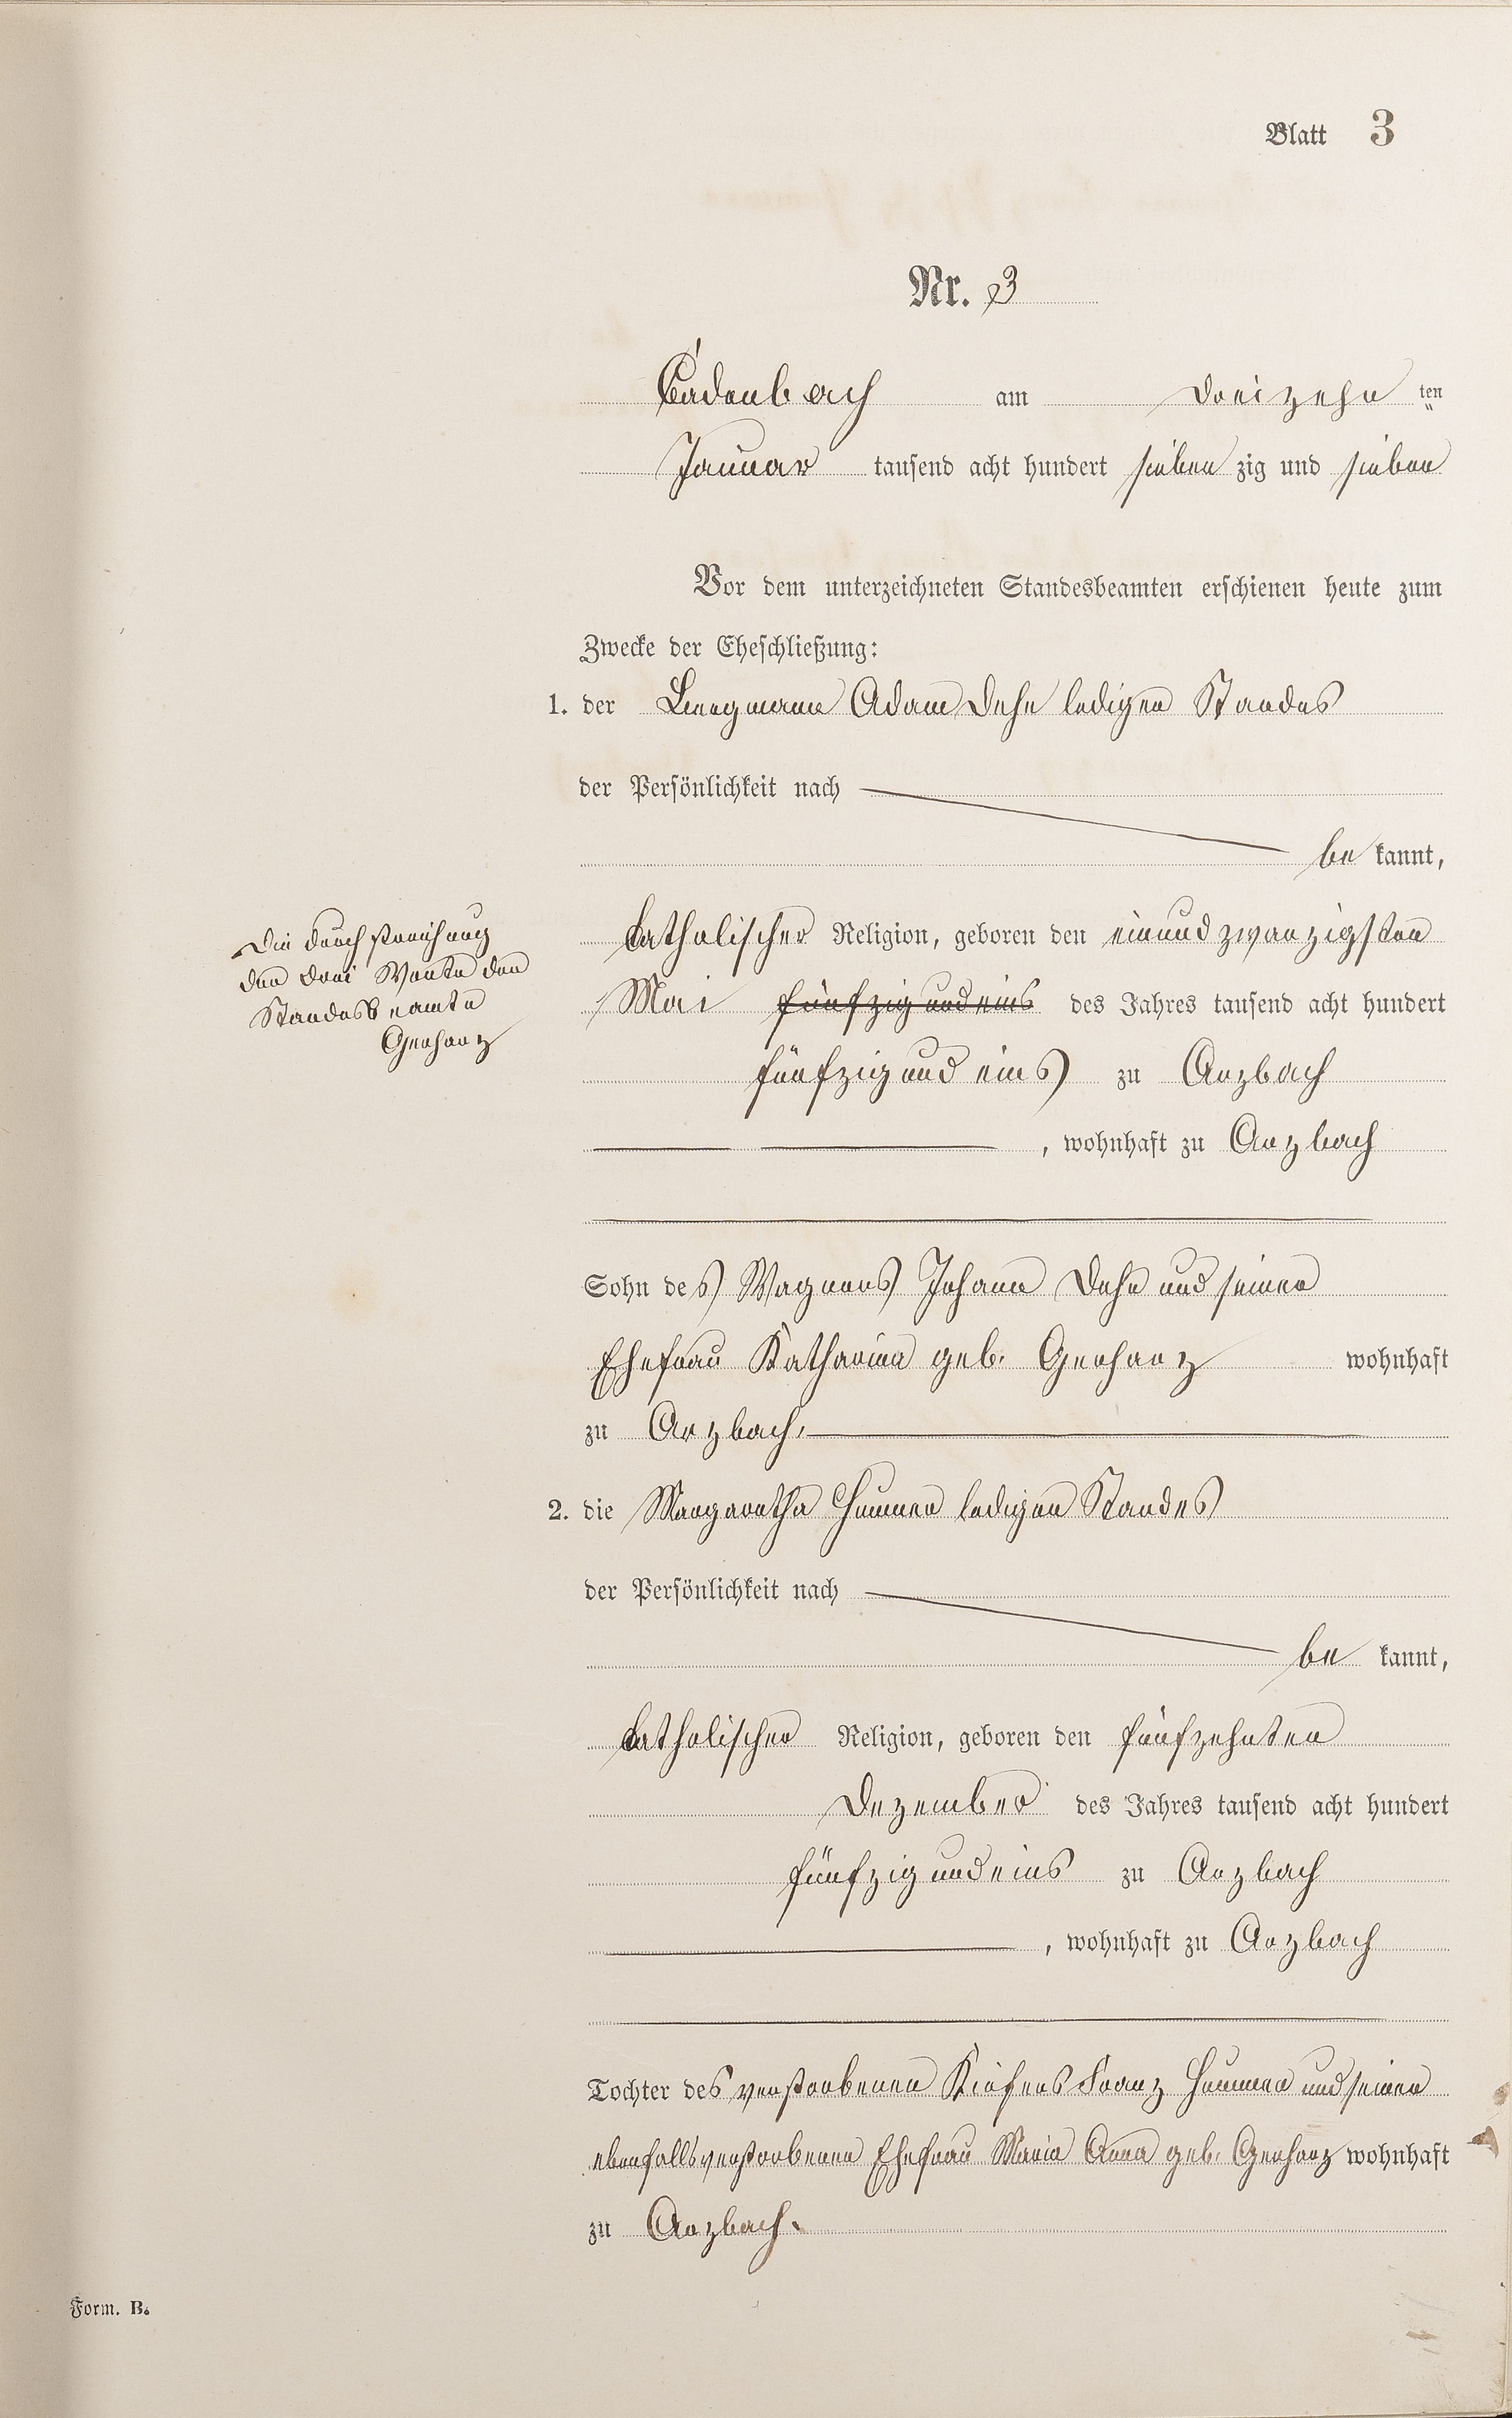 Blatt 3
Nr. 3
Cadenbach am dreizehn ten
Januar tausend acht hundert sieben zig und sieben
Vor dem unterzeichneten Standesbeamten erschienen heute zum
Zwecke der Eheschließung:
1. der Bergmann Adam Dehe ledigen Standes
der Persönlichkeit nach
be kannt,
katholischer Religion, geboren den einundzwanzigsten
Mai fünfzig und eins des Jahres tausend acht hundert
fünfzig und eins zu Arzbach
, wohnhaft zu Arzbach
Die durchstreichung
der drei Worte der
Standesbeamte
Gerharz
Sohn des Wagners Johann Dehe und seiner
Ehefrau Katharina geb. Gerharz wohnhaft
zu Arzbach.
2. die Margaretha Hummer ledigen Standes
der Persönlichkeit nach
be kannt,
katholischer Religion, geboren den fünfzehnten
Dezember des Jahres tausend acht hundert
fünfzig und eins zu Arzbach
, wohnhaft zu Arzbach
Tochter des verstorbenen Kiefers Franz Hummer und seiner
ebenfalls verstorbenen Ehefrau Maria Anna geb. Gerharz wohnhaft
zu Arzbach.
Form. B.